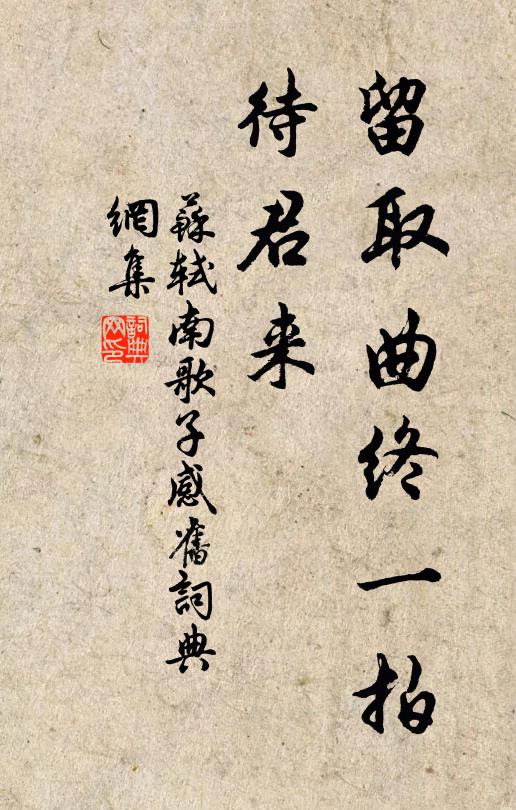 留取曲终一拍
待君来
蘇軾南歌子感舊詞典
網集
詞典网印